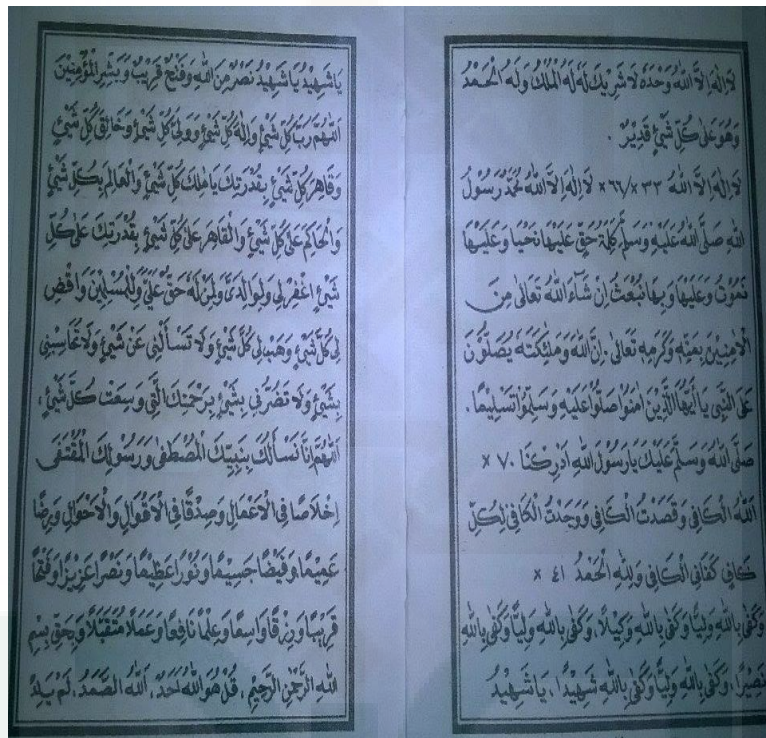 لَا اِلٰهَ اِلَّا اللّٰهُ وَحْدَهُ لَا شَرِيْكَ لَهُ لَهُ الْمُلْكُ وَلَهُ الْحَمْدُ
وَهُوَ عَلٰى كُلِّ شَيْئٍ قَدِيْرٌ .
لَا اِلٰهَ اِلَّا اللّٰهُ ٣٣ × /٦٦ × لَا اِلٰهَ اِلَّا اللّٰهُ مُحَمَّدٌ رَسُوْلُ
اللّٰهِ صَلَّى اللّٰهُ عَلَيْهِ وَسَلَّمَ كَلِمَةُ حَقٍّ عَلَيْهَا نَحْيَا وَعَلَيْهَا
نَمُوْتُ وَعَلَيْهَا وَبِهَا نُبْعَثُ اِنْ شَآءَ اللّٰهُ تَعَالٰى مِنَ
الْاٰمِنِيْنَ بِمَنِّهِ وَكَرَمِهِ تَعَالٰى . اِنَّ اللّٰهَ وَمَلٰئِكَتَهُ يُصَلُّوْنَ
عَلَى النَّبِيِّ يَا اَيُّهَا الَّذِيْنَ اٰمَنُوْا صَلُّوْا عَلَيْهِ وَسَلِّمُوْا تَسْلِيْمًا .
صَلَّى اللّٰهُ وَسَلَّمَ عَلَيْكَ يَا رَسُوْلَ اللّٰهِ اَدْرِكْنَا ٧٠ ×
اَللّٰهُ الْكَافِى وَقَصَدْتُ الْكَافِى وَوَجَدْتُ الْكَافِى لِكُلِّ
كَافِى كَفَانِى الْكَافِى وَلِلّٰهِ الْحَمْدُ ٤١ ×
وَكَفٰى بِاللّٰهِ وَلِيًّا وَكَفٰى بِاللّٰهِ وَكِيْلًا ، وَكَفٰى بِاللّٰهِ وَلِيًّا وَكَفٰى بِاللّٰهِ
نَصِيْرًا ، وَكَفٰى بِاللّٰهِ وَلِيًّا وَكَفٰى بِاللّٰهِ شَهِيْدًا ، يَا شَهِيْدُ
يَا شَهِيْدُ يَا شَهِيْدُ نَصْرٌ مِنَ اللّٰهِ وَفَتْحٌ قَرِيْبٌ وَبَشِّرِ الْمُؤْمِنِيْنَ
اَللّٰهُمَّ رَبَّ كُلِّ شَيْئٍ وَاِلٰهَ كُلِّ شَيْئٍ وَوَلِيَّ كُلِّ شَيْئٍ وَخَالِقَ كُلِّ شَيْئٍ
وَقَاهِرَ كُلِّ شَيْئٍ بِقُدْرَتِكَ يَا مَلِكَ كُلِّ شَيْئٍ وَالْعَالِمَ بِكُلِّ شَيْئٍ
وَالْحَاكِمَ عَلٰى كُلِّ شَيْئٍ وَالْقَاهِرَ عَلٰى كُلِّ شَيْئٍ بِقُدْرَتِكَ عَلٰى كُلِّ
شَيْئٍ اغْفِرْلِى وَلِوَالِدَيَّ وَلِمَنْ لَهُ حَقٌّ عَلَيَّ وَلِلْمُسْلِمِيْنَ وَاقْضِ
لِى كُلَّ شَيْئٍ وَهَبْ لِى كُلَّ شَيْئٍ وَلَا تَسْأَلْنِى عَنْ شَيْئٍ وَلَا تُحَاسِبْنِى
بِشَيْئٍ وَلَا تَضُرَّنِى بِشَيْئٍ بِرَحْمَتِكَ الَّتِى وَسِعَتْ كُلَّ شَيْئٍ ،
اَللّٰهُمَّ اِنَّا نَسْأَلُكَ بِنَبِيِّكَ الْمُصْطَفٰى وَرَسُوْلِكَ الْمُقْتَفَى
اِخْلَاصًا فِى الْاَعْمَالِ وَصِدْقًا فِى الْاَقْوَالِ وَالْاَحْوَالِ وَرِضًا
عَمِيْمًا وَفَيْضًا جَسِيْمًا وَنُوْرًا عَظِيْمًا وَنَصْرًا عَزِيْزًا وَفَتْحًا
قَرِيْبًا وَرِزْقًا وَاسِعًا وَعِلْمًا نَافِعًا وَعَمَلًا مُتَقَبَّلًا وَبِحَقِّ بِسْمِ
اللّٰهِ الرَّحْمٰنِ الرَّحِيْمِ ، قُلْ هُوَ اللّٰهُ اَحَدٌ ، اَللّٰهُ الصَّمَدُ ، لَمْ يَلِدْ